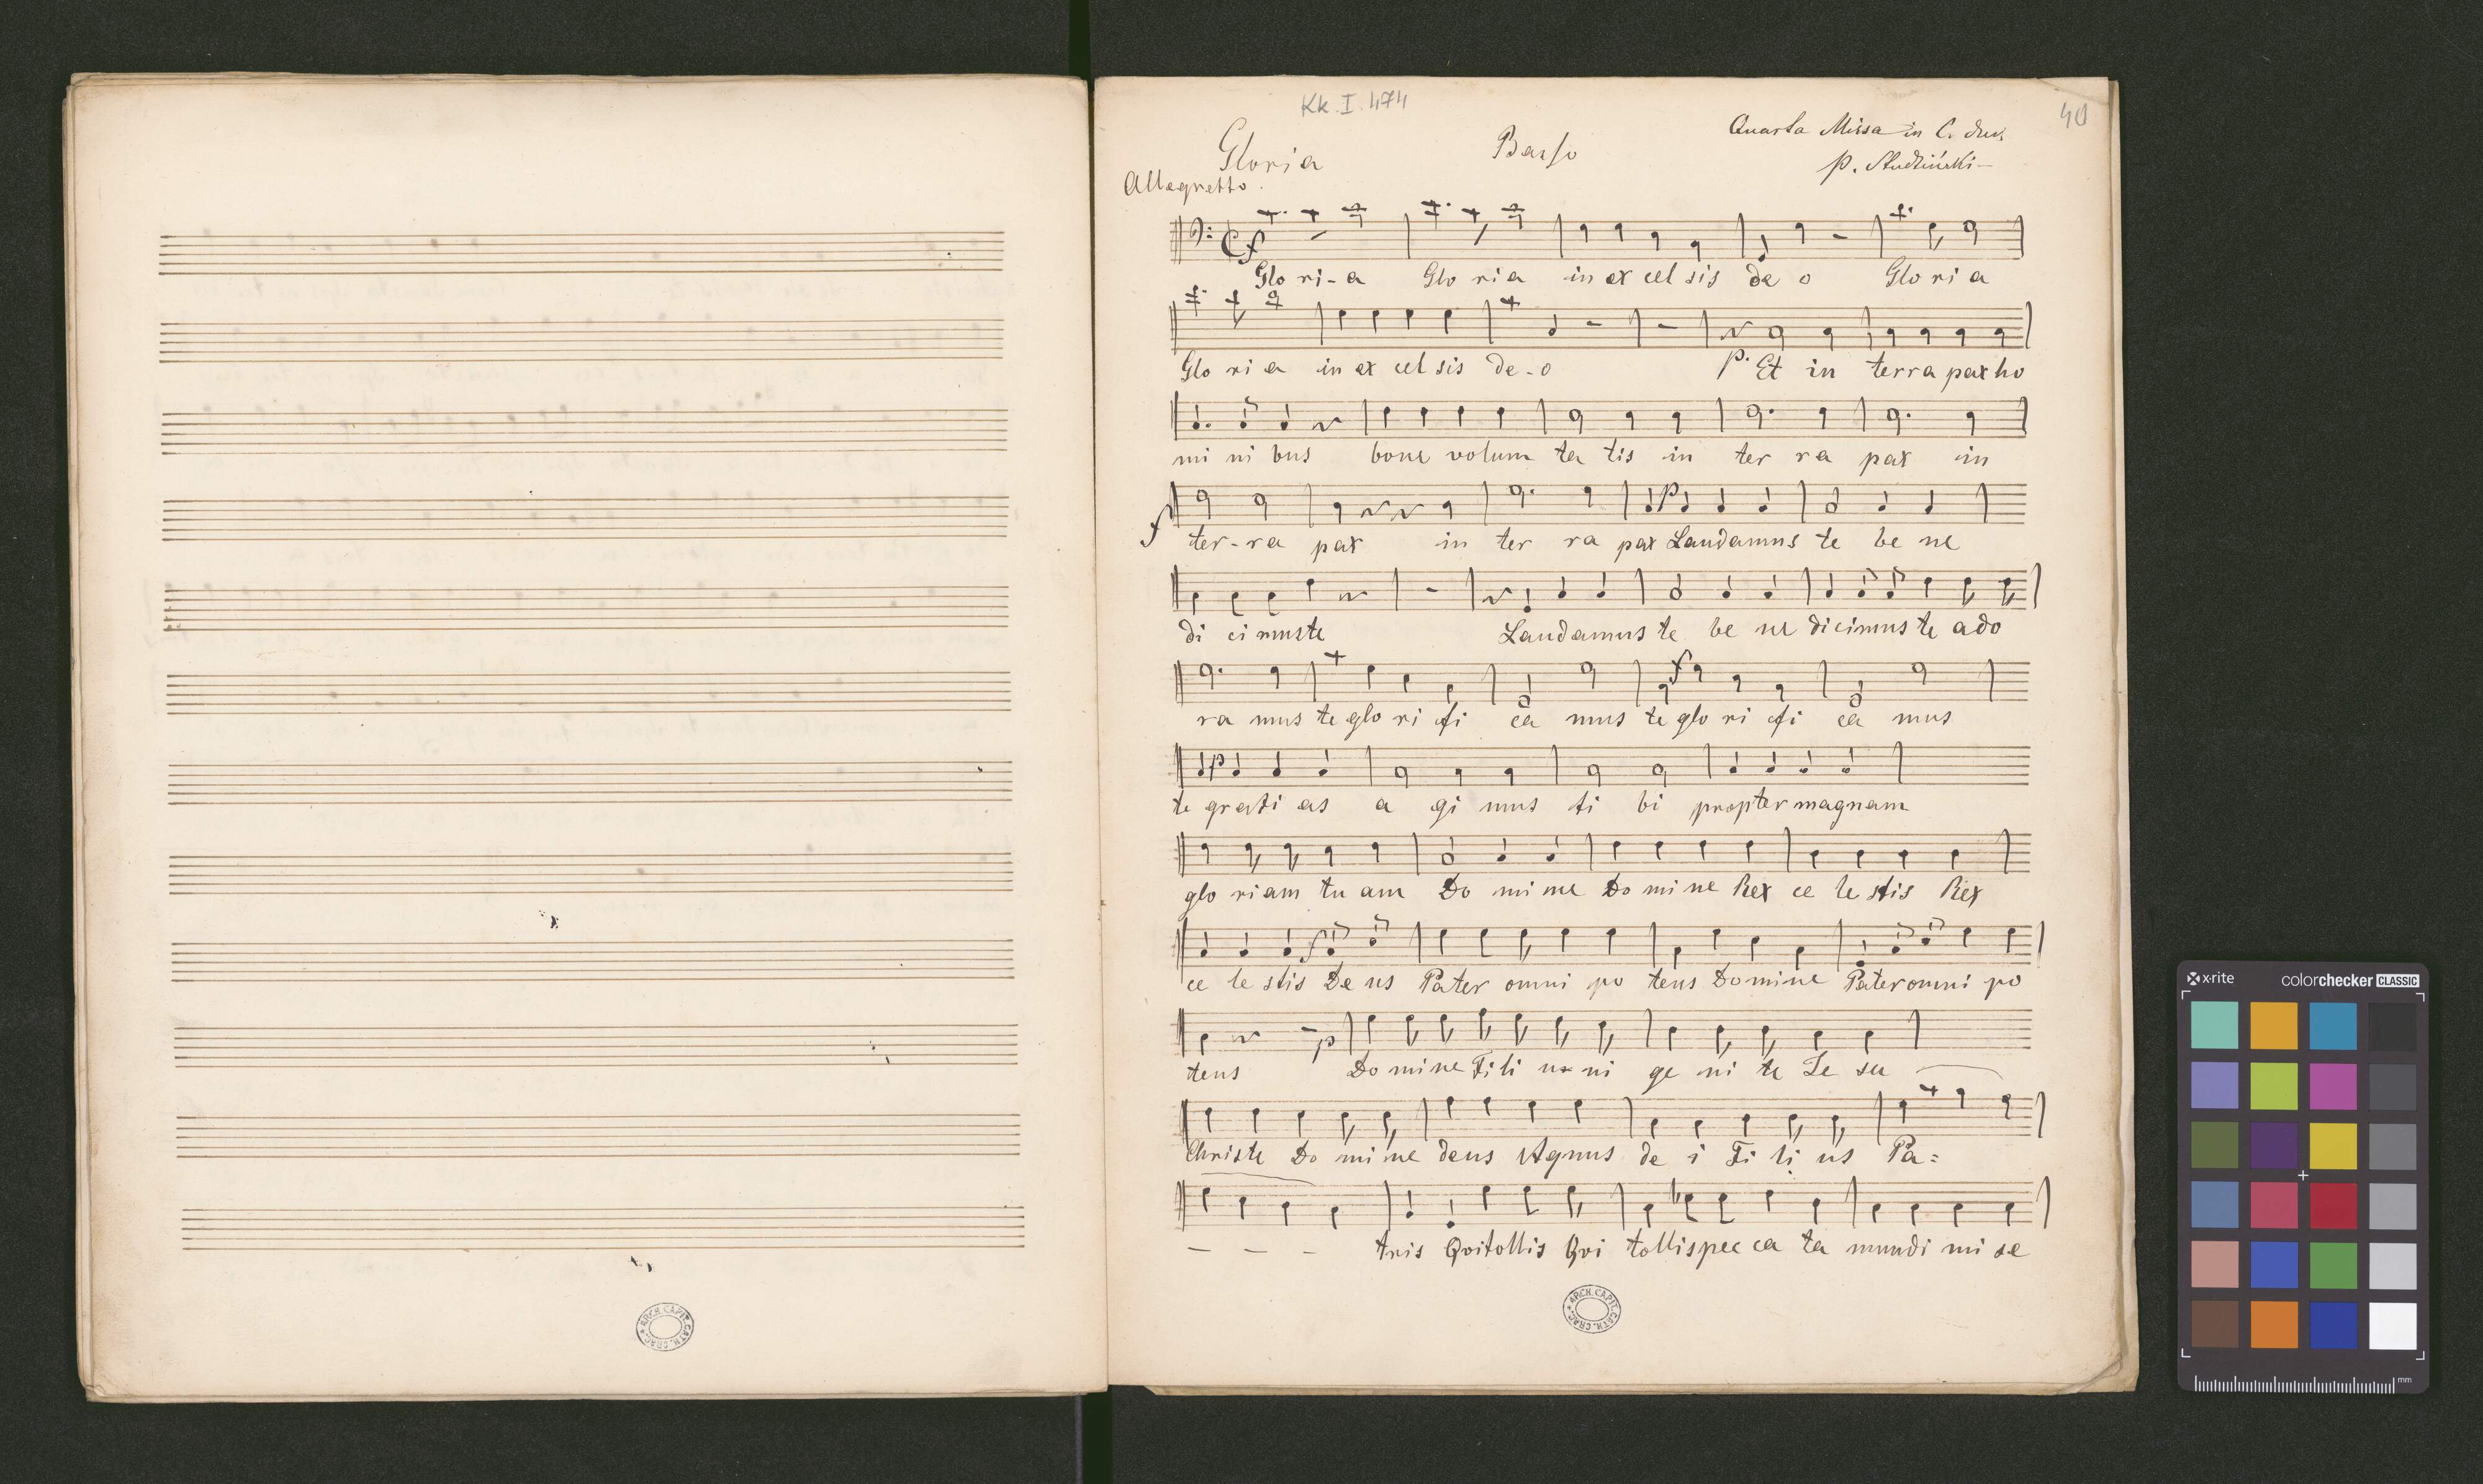 Kk. I. 474
40
Quarta Missa in C. dur
Gloria
Basso
p. Studziński
Allegretto.
f
Glo ri - a Glo ria in ex cel sis de o Glo ri a
Glo ri a in ex cel sis de - o p. Et in terra pax ho
mi ni bus bone volum ta tis in ter ra pax in
f
ter - ra pax in ter ra pax Laudamus te be ne
p
di ci muste Laudamus te be ne dicimus te ado
f
ra mus te glo ri fi ca mus te glo ri fi ca mus
p
te grati as a gi mus ti bi propter magnam
glo riam tu am Do mi ne Do mi ne Rex ce le stis Rex
f
ce le stis De us Pater omni po tens Domine Pater omni po
p
tens Do mine Fili u ni ge ni te Je su
Christe Do mi ne deus Agnus de i Fi li us Pa =
— — — tris Qui tollis Qui tollis pec ca ta mundi mi se
ARCH. CAPIT. CATH. CRAC.
ARCH. CAPIT. CATH. CRAC.
x-rite
colorchecker CLASSIC
mm